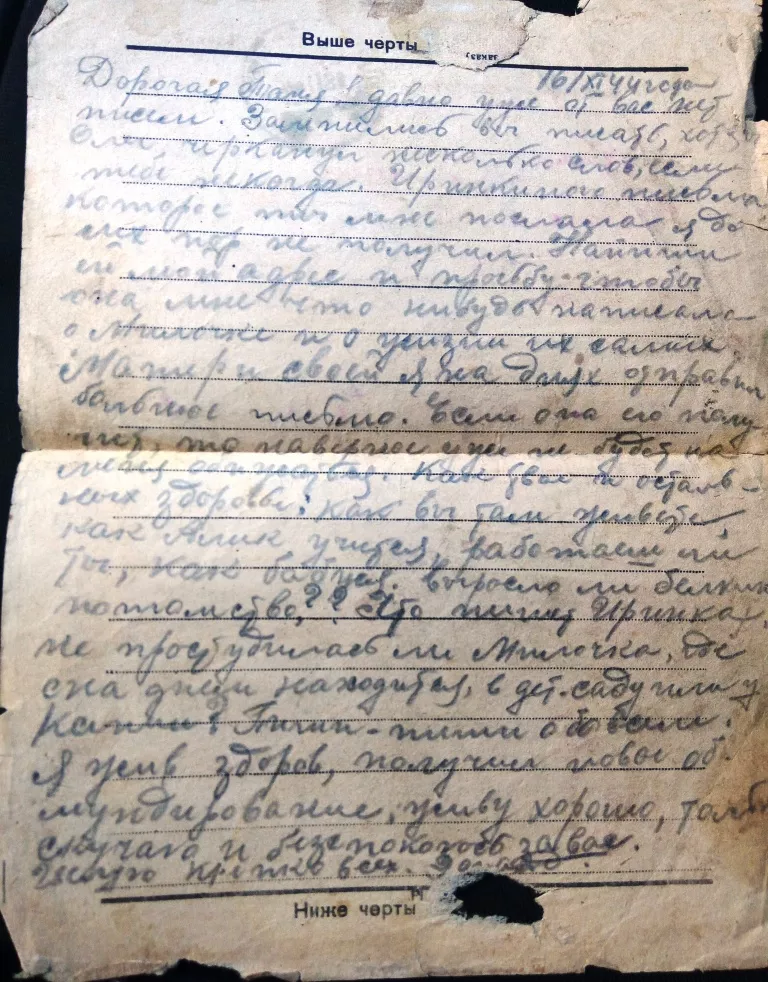 Выше черты
заказ,
16/XI 44 года
Дорогая Таня! давно уже от вас нет
писем. Заленились вы писать, хотя
бы черканули несколько слов, если
тебе некогда. Иринкиного письма
которое ты мне послала я до
сих пор не получил. Напиши
ей мой адрес и просьбу чтобы
она мне что нибудь написала
о Милочке и о жизни их самих.
Матери своей я на днях отправил
большое письмо. Если она его полу-
чит, то наверное уже не будет на
меня обижаться. Как твое и осталь-
ных здоровье; как вы там живете
как Алик учится, работаешь ли
ты, как бабуся. Выросло ли белкино
потомство?? Что пишет Иринка,
не простудилась ли Милочка, где
она днем находится, в дет.саду или у
? - пиши обо всем.
Я жив здоров, получил новое об-
мундирование, живу хорошо, только
скучаю и беспокоюсь за вас.
Целую крепко всех.
Ниже черты